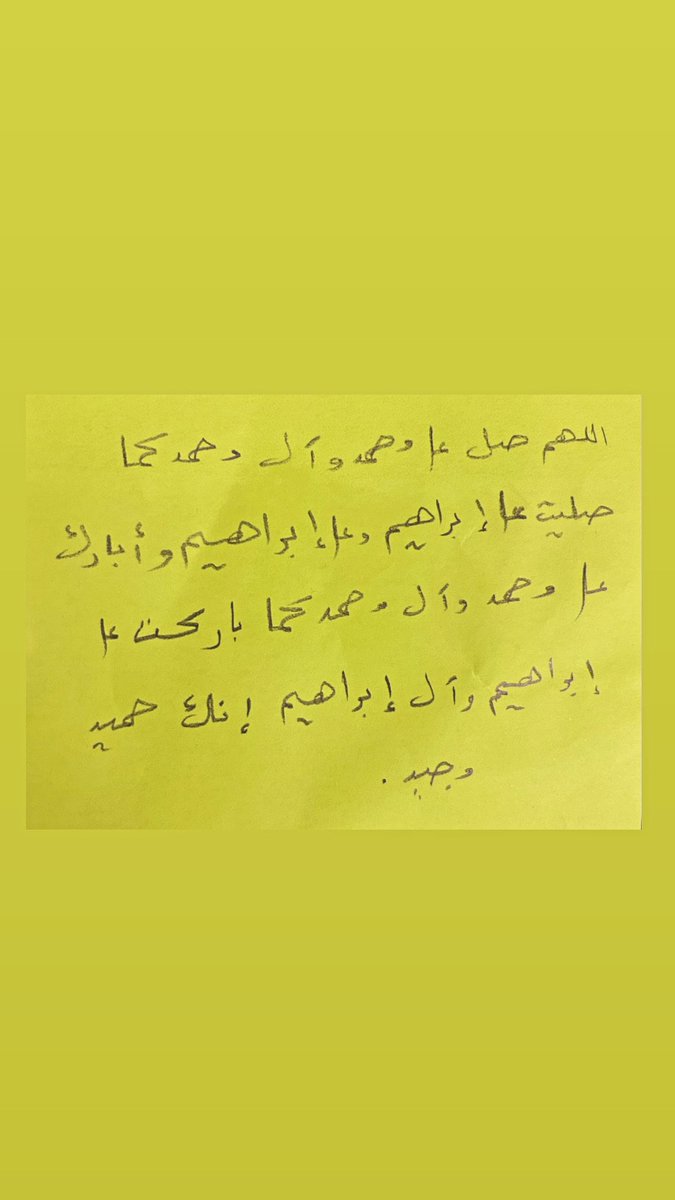 اللهم صل علا محمد وآل محمد كما
صليت علا إبراهيم وعلا إبراهيم وأبارك
علا محمد وآل محمد كما باركت علا
إبراهيم وآل إبراهيم إنك حميد
مجيد .